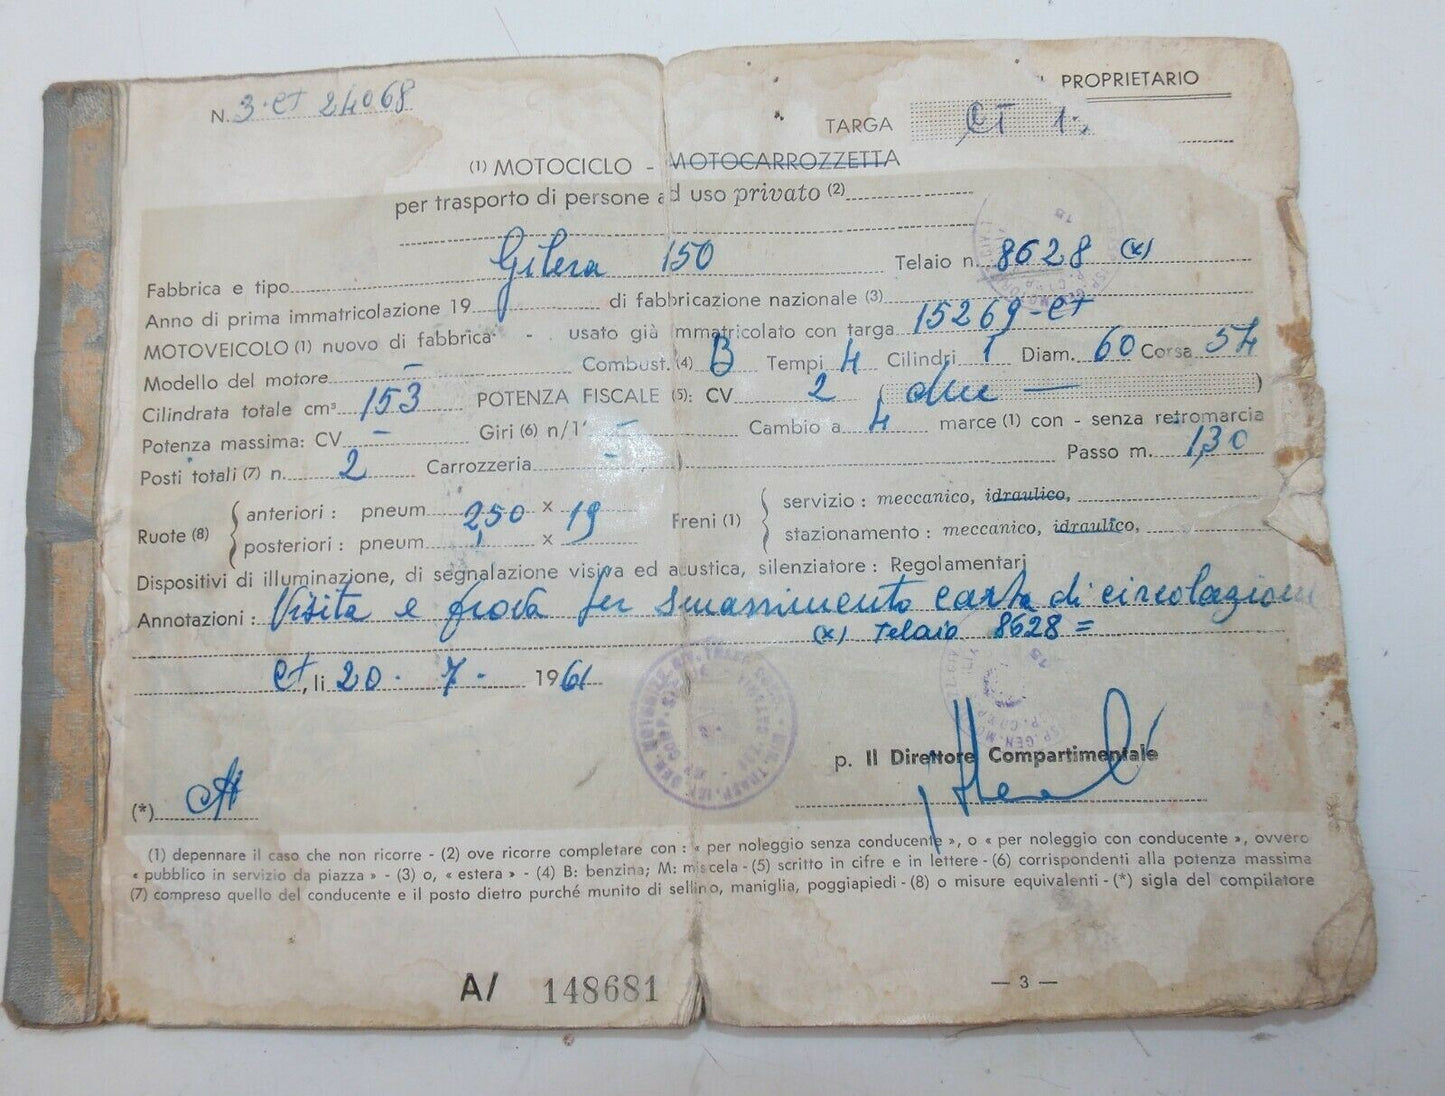 N. 3 · CT 24068
PROPRIETARIO
TARGA CT 1
(1) MOTOCICLO - MOTOCARROZZETTA
per trasporto di persone ad uso privato (2)
Fabbrica e tipo Gilera 150 Telaio n. 8628 (x)
Anno di prima immatricolazione 19 di fabbricazione nazionale (3)
MOTOVEICOLO (1) nuovo di fabbrica - usato già immatricolato con targa 15269-CT
Modello del motore - Combust. (4) B Tempi 4 Cilindri 1 Diam. 60 Corsa 54
Cilindrata totale cm³ 153 POTENZA FISCALE (5): CV 2 ( due — )
Potenza massima: CV - Giri (6) n/1' - Cambio a 4 marce (1) con - senza retromarcia
Posti totali (7) n. 2 Carrozzeria - Passo m. 1,30
Ruote (8) { anteriori : pneum. 250 x 19 Freni (1) { servizio : meccanico, idraulico,
posteriori : pneum. x stazionamento : meccanico, idraulico,
Dispositivi di illuminazione, di segnalazione visiva ed acustica, silenziatore : Regolamentari
Annotazioni : Visita e prova per smarrimento carta di circolazione
(x) Telaio 8628 =
CT, li 20 · 7 · 1961
p. Il Direttore Compartimentale
(*)
(1) depennare il caso che non ricorre - (2) ove ricorre completare con : « per noleggio senza conducente », o « per noleggio con conducente », ovvero
« pubblico in servizio da piazza » - (3) o, « estera » - (4) B: benzina; M: miscela - (5) scritto in cifre e in lettere - (6) corrispondenti alla potenza massima
(7) compreso quello del conducente e il posto dietro purché munito di sellino, maniglia, poggiapiedi - (8) o misure equivalenti - (*) sigla del compilatore
A/ 148681
— 3 —